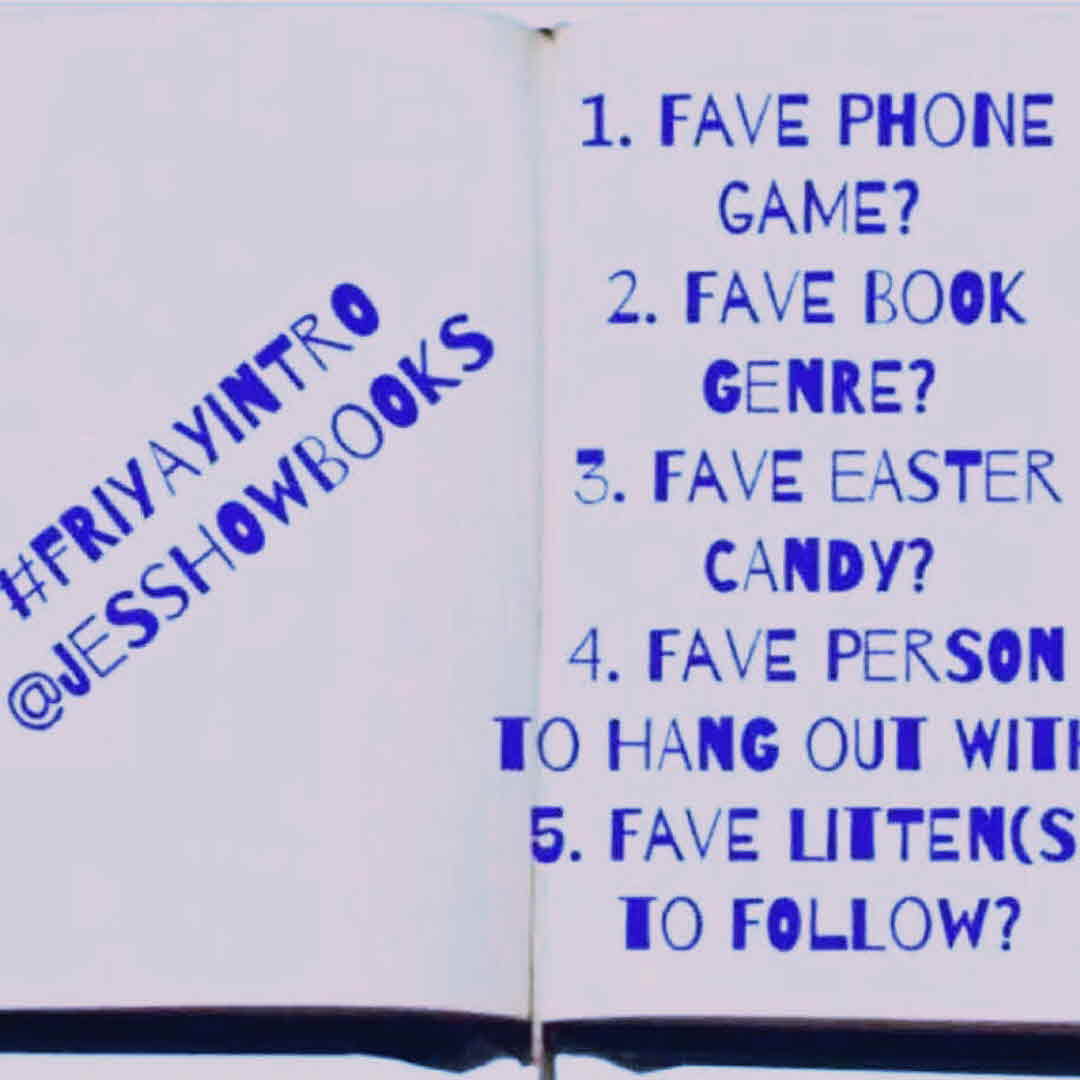 #FRIYAYINTRO
@JESSHOWBOOKS
1. FAVE PHONE
GAME?
2. FAVE BOOK
GENRE?
3. FAVE EASTER
CANDY?
4. FAVE PERSON
TO HANG OUT WITH
5. FAVE LITTEN(S
TO FOLLOW?